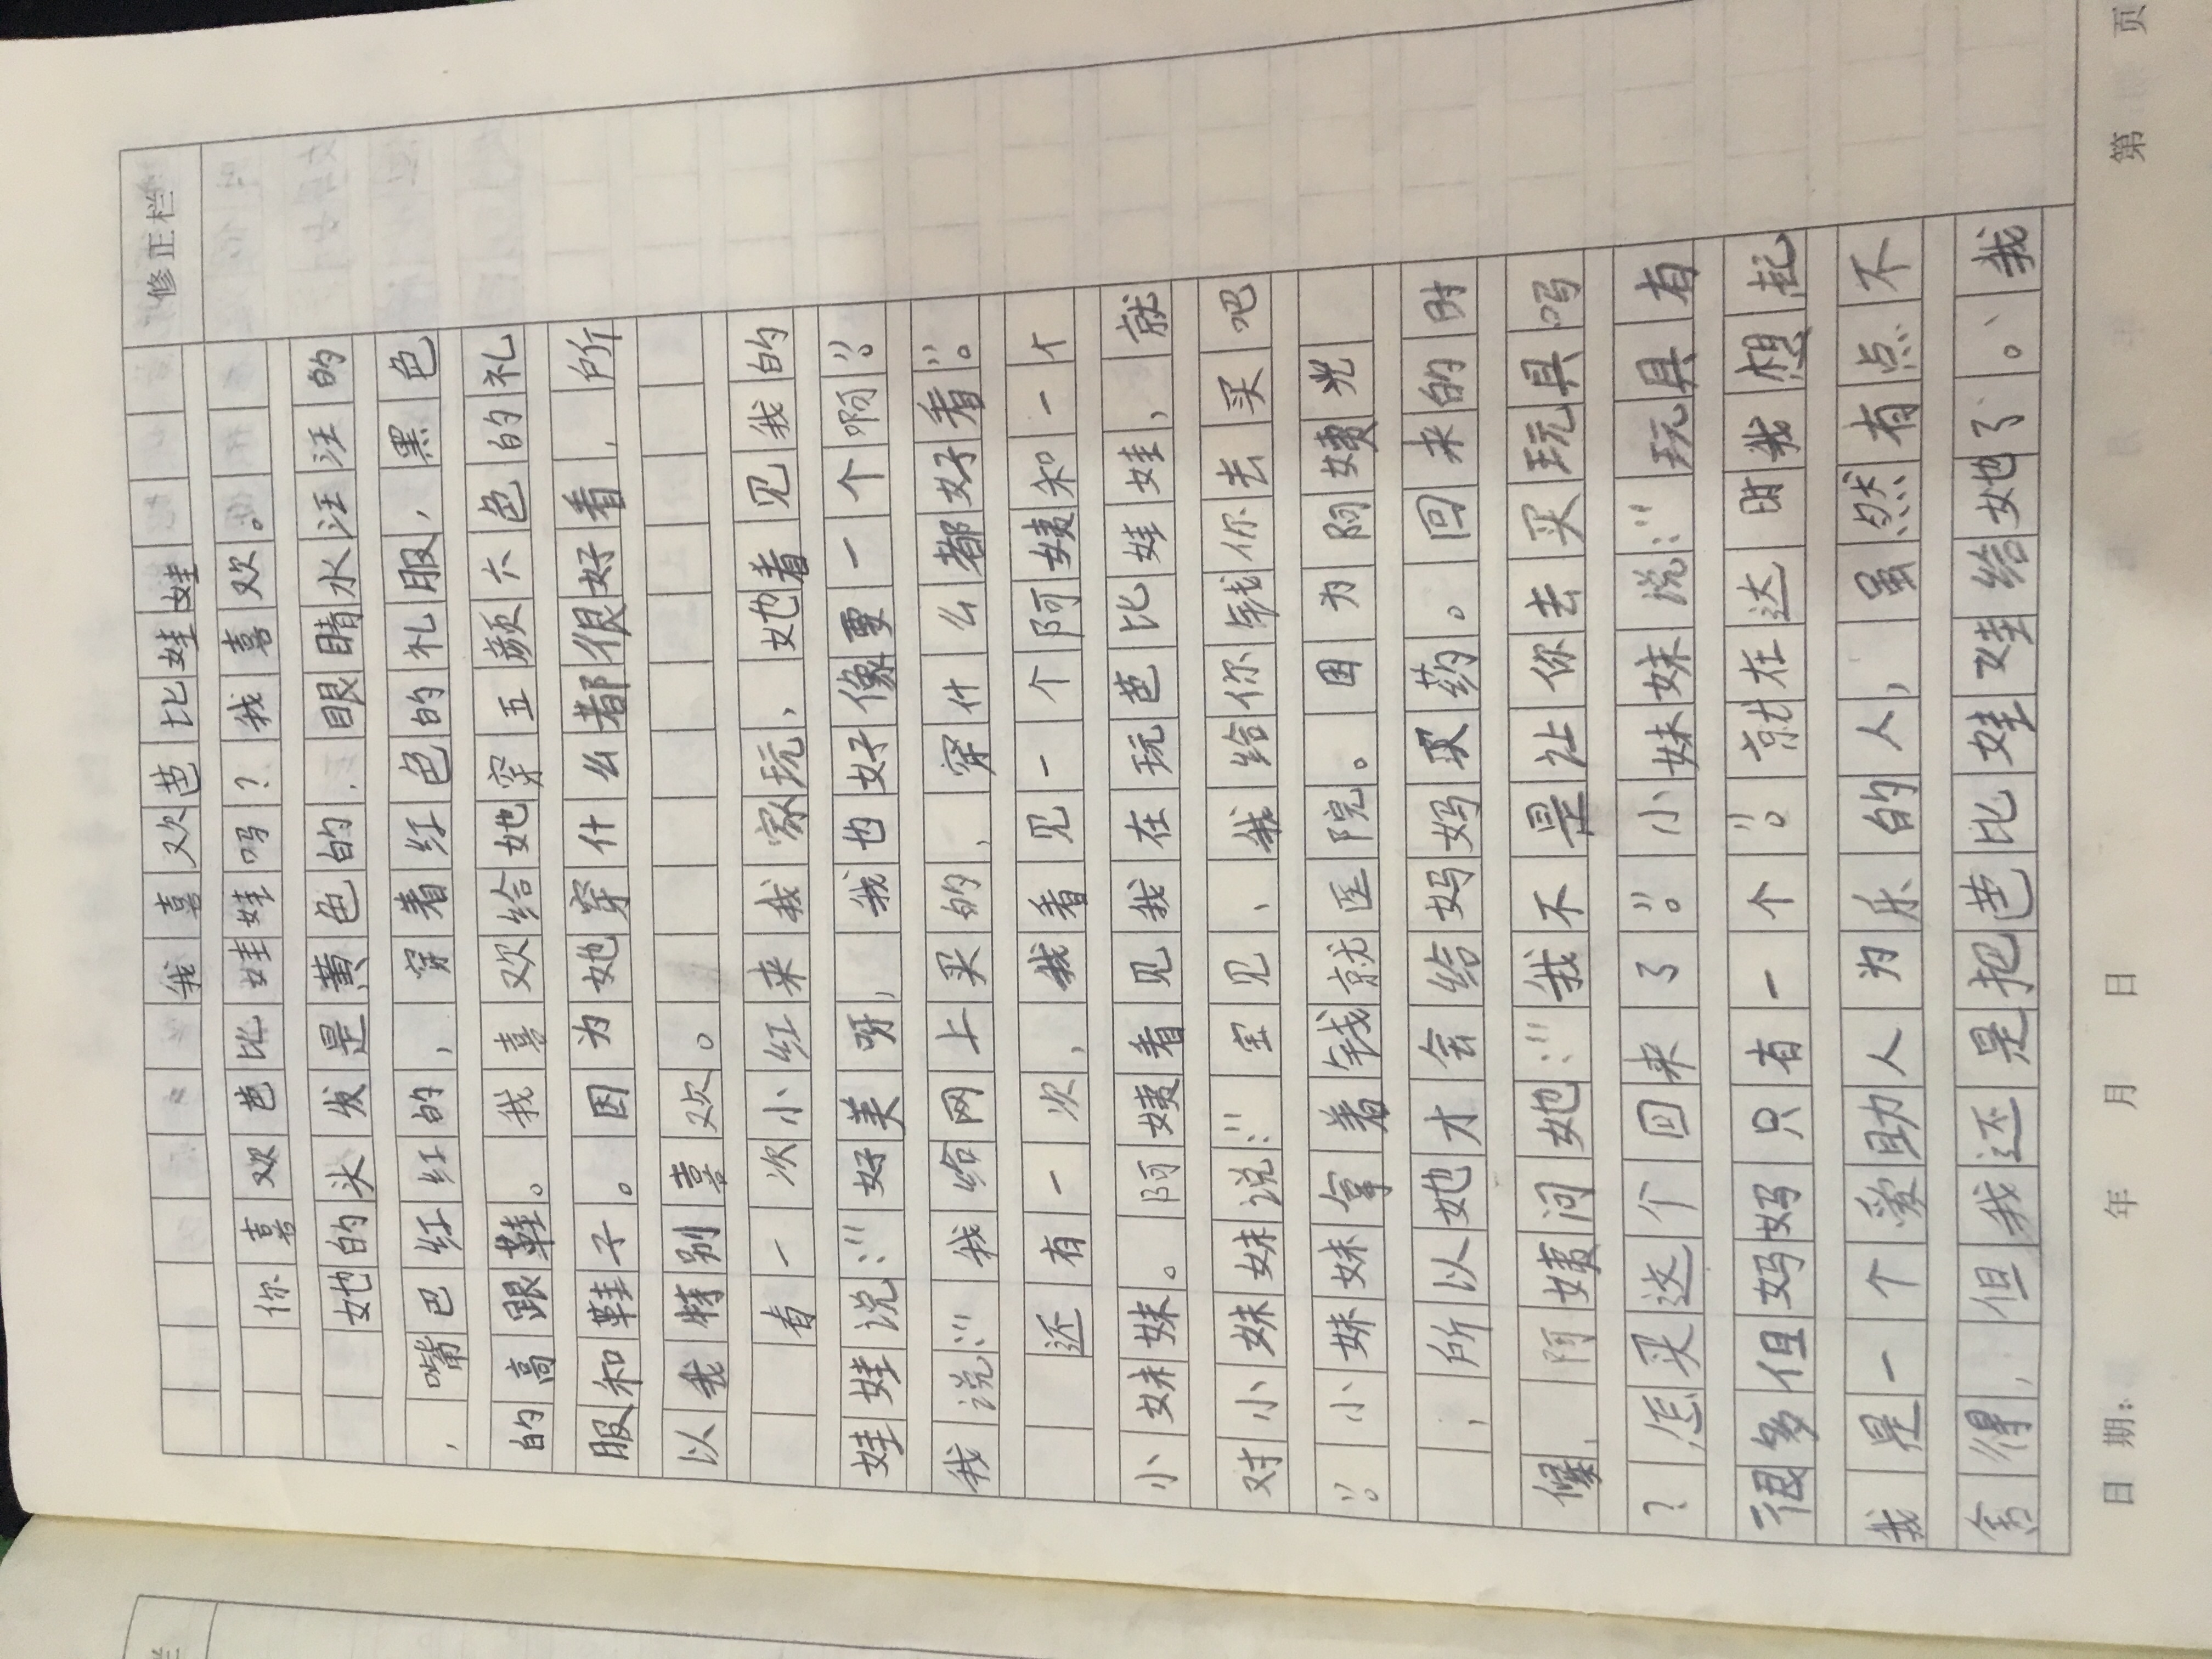 修正栏
我喜欢芭比娃娃
你喜欢芭比娃娃吗?我喜欢。
她的头发是黄色的,眼睛水汪汪的
,嘴巴红红的,穿着红色的礼服,黑色
的高跟鞋。我喜欢给她穿五颜六色的礼
服和鞋子。因为她穿什么都很好看,所
以我特别喜欢。
有一次小红来我家玩,她看见我的
娃娃说:“好美呀,我也好像要一个啊”
我说:“我给网上买的,穿什么都好看”。
还有一次,我看见一个阿姨和一个
小妹妹。阿姨看见我在玩芭比娃娃,就
对小妹妹说:“宝见、我给你钱你去买吧
”。小妹妹拿着钱就医院。因为阿姨光
,所以她才会给妈妈买药。回来的时
候,阿姨问她:“我不是让你去买玩具吗
?怎买这个回来了”。小妹妹说:“玩具有
很多但妈妈只有一个”。就在这时我想起
我是一个爱助人为乐的人,虽然有点不
舍得,但我还是把芭比娃娃给她了。我
日期: 年 月 日 第 页